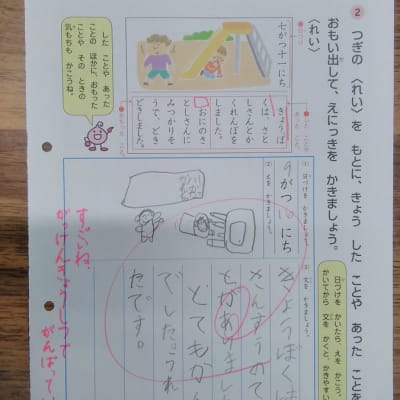 2
つぎの 〈れい〉を もとに、きょう した ことや あった ことを
おもい出して、えにっきを かきましょう。
〈れい〉
七がつ十一にち
きょうぼ
くは、さと
しさんとか
くれんぼを
しました。
おにのさ
としさんに
みつかりそ
うで、どき
どきしました。
した ことや あった
ことの ほかに、おもった
ことや その ときの
気もちも かこうね。
日づけを かいたら、えを かこう。
かいてから 文を かくと、かきやすい
(1) 日づけを かきましょう。
9がつ10にち
(2) えを かきましょう。
(3) 文を かきましょう。
きょうぼくは
さんすうのて
とがありました
とてもかん
でした。うれ
たです。
すごいね。
がんばってい